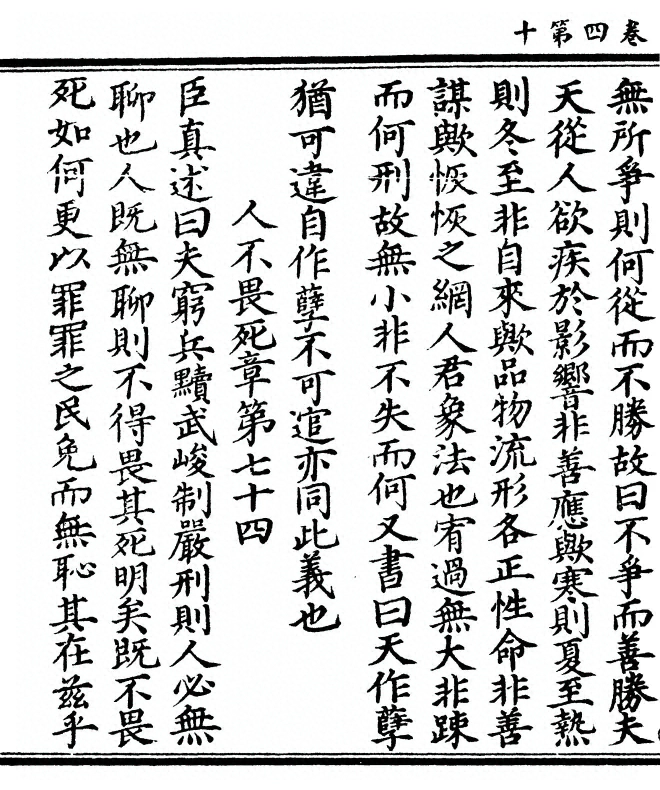 卷四第十
無所爭則何從而不勝故曰不爭而善勝夫
天從人欲疾於影響非善應歟寒則夏至熱
則冬至非自來歟品物流形各正性命非善
謀歟恢恢之網人君象法也宥過無大非踈
而何刑故無小非不失而何又書曰天作孽
猶可違自作孽不可逭亦同此義也
人不畏死章第七十四
臣真述曰夫窮兵黷武峻制嚴刑則人必無
聊也人既無聊則不得畏其死明矣既不畏
死如何更以罪罪之民免而無恥其在茲乎